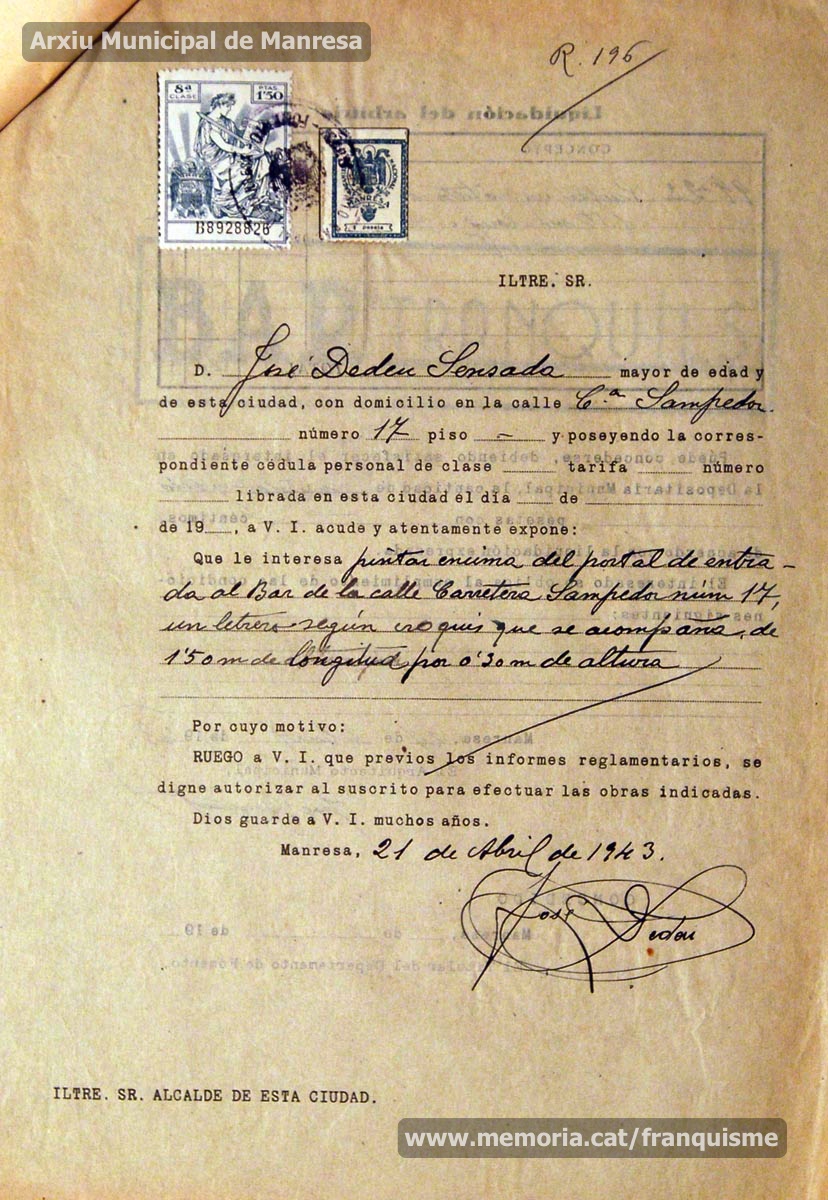 Arxiu Municipal de Manresa
R. 196
8ª CLASE PTAS 1'50
B8928826
1 peseta
Liquidación del arbitrio
CONCEPTO
ILTRE. SR.
D. José Dedeu Sensada mayor de edad y
de esta ciudad, con domicilio en la calle C.ª Sampedor.
número 17 piso - y poseyendo la corres-
pondiente cédula personal de clase tarifa número
librada en esta ciudad el día de
de 19 , a V. I. acude y atentamente expone:
Que le interesa pintar encima del portal de entra-
da al Bar de la calle Carretera Sampedor núm 17,
un letrero según croquis que se acompaña, de
1'50 m de longitud por 0'30 m de altura
Por cuyo motivo:
RUEGO a V. I. que previos los informes reglamentarios, se
digne autorizar al suscrito para efectuar las obras indicadas.
Dios guarde a V. I. muchos años.
Manresa, 21 de Abril de 1943.
José Dedeu
ILTRE. SR. ALCALDE DE ESTA CIUDAD.
www.memoria.cat/franquisme